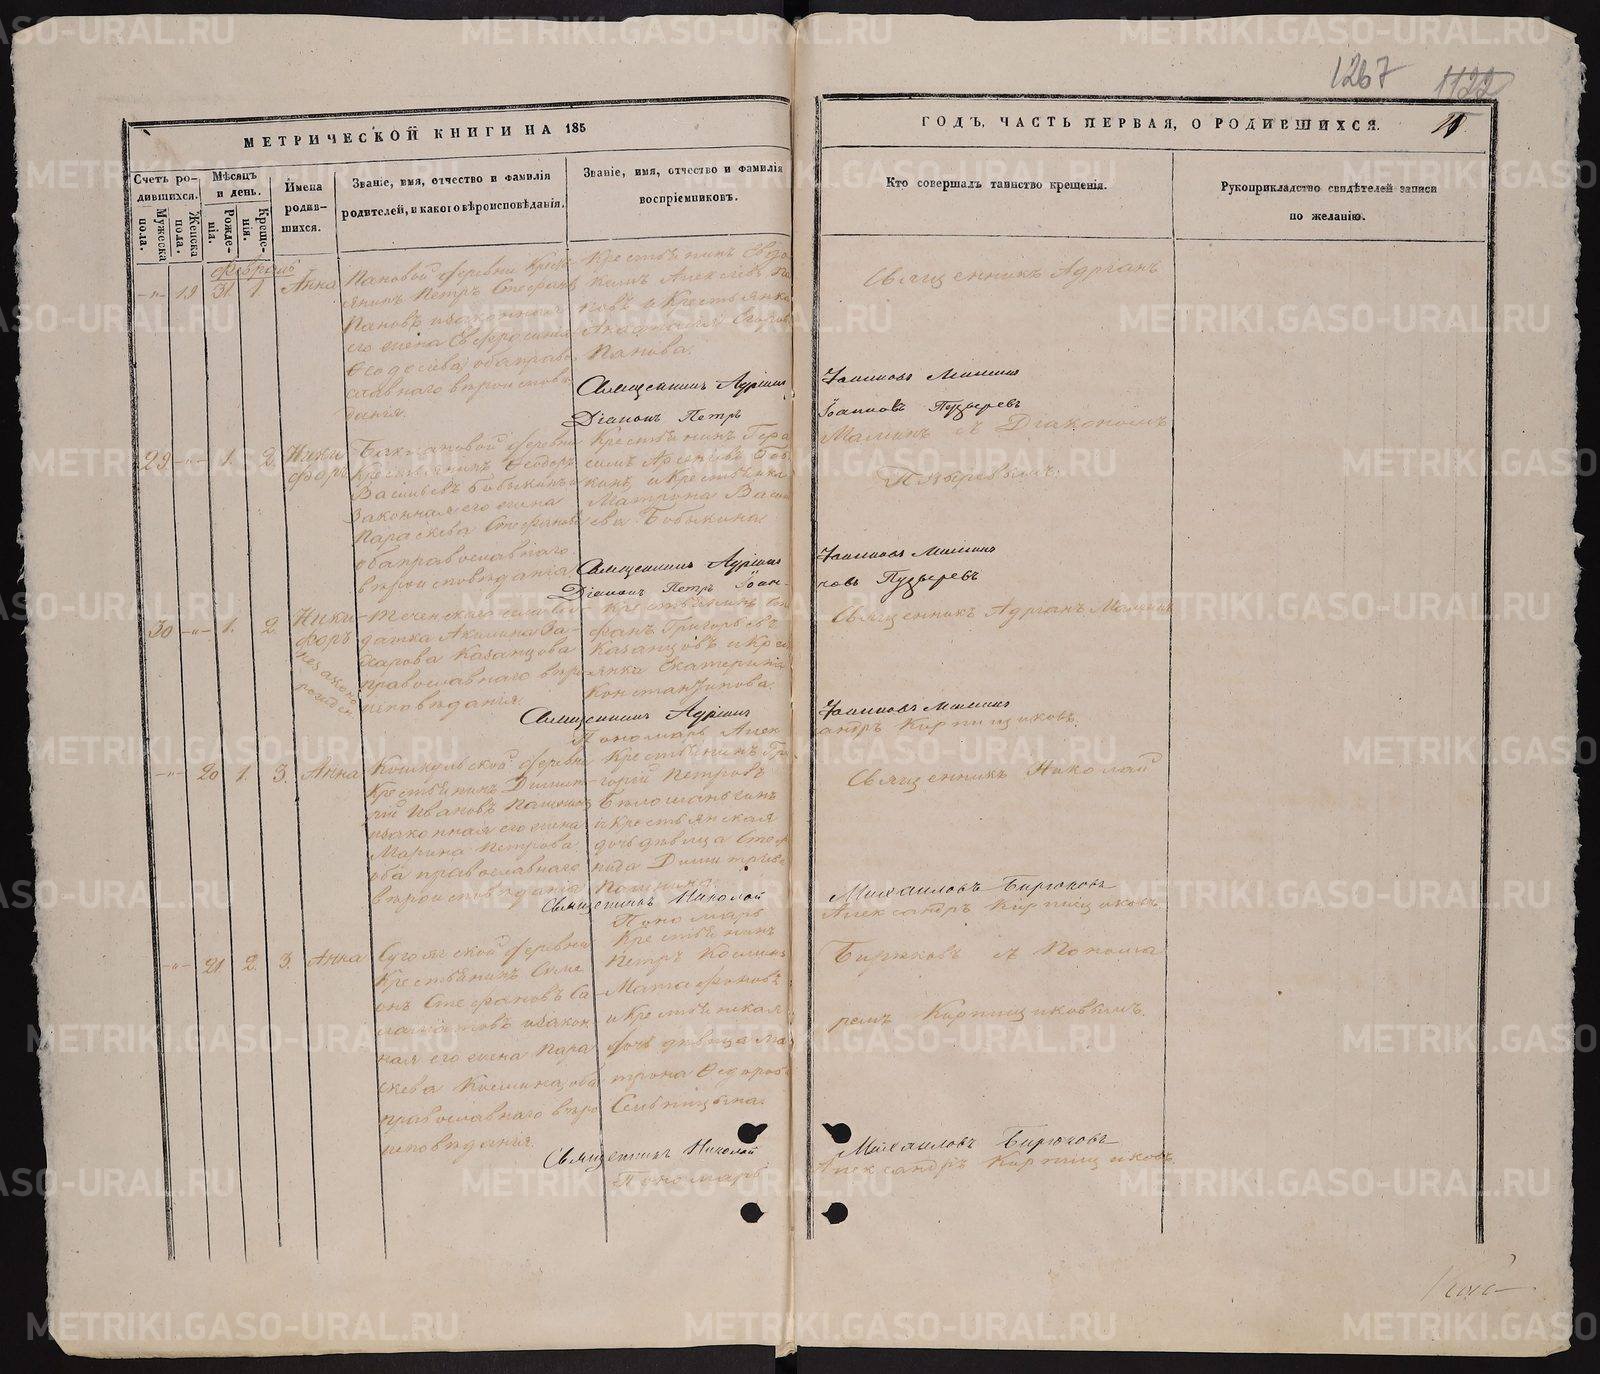 1267 1122
МЕТРИЧЕСКОЙ КНИГИ НА 185
ГОДЪ, ЧАСТЬ ПЕРВАЯ, О РОДИВШИХСЯ.
Счетъ ро-
дившихся.
Мужеска пола.
Женска пола.
Мѣсяцъ
и день.
Рожде-
нія.
Креще-
нія.
Имена
родив-
шихся.
Званіе, имя, отчество и фамилія
родителей, и какого вѣроисповѣданія.
Званіе, имя, отчество и фамилія
воспріемниковъ.
Кто совершалъ таинство крещенія.
Рукоприкладство свидѣтелей записи
по желанію.
февраль
-"- 19 31. 1. Анна
Пановой деревни Крест
янинъ Петръ Стефанов
Пановъ и законная
его жена Евфросинія
Ѳеодосіева, оба право
славнаго вѣроисповѣ
данія.
Крестьянинъ
кимъ Алексѣевъ Па
новъ и Крестьянка
Панова.
Священникъ Адріанъ
Священникъ Адріанъ Іоанновъ Маминъ
Діаконъ Петръ Іоанновъ Пузыревъ
29 -"- 1. 2. Ники
форъ
деревни
Крестьянинъ Ѳеодоръ
Васильевъ Бобыкинъ и
Законная его жена
Параскева Стефанова
оба православнаго
вѣроисповѣданія.
Крестьянинъ Гера
симъ Арсеньевъ Боб
кинъ и Крестьянка
Матрона Васи
ева Бобыкина
Маминъ съ Діакономъ
Пузыревымъ.
Священникъ Адріанъ Іоанновъ Маминъ
Діаконъ Петръ Іоан-
новъ Пузыревъ
30 -"- 1. 2. Ники
форъ
незаконо
рожден
Теченскаго села Сол
датка Акилина За-
харова Казанцова
православнаго вѣро
исповѣданія.
Крестьянинъ Сте
фанъ Григорьевъ
Казанцовъ и Крес
янка Екатерина
Константинова.
Священникъ Адріанъ Маминъ
Священникъ Адріанъ Іоанновъ Маминъ
Пономарь Алек
андръ Кирпищиковъ.
-"- 20 1. 3. Анна
Кошкульской деревни
Крестьянинъ Димит-
рій Ивановъ Пашнинъ
и законная его жена
Марина Петрова
оба православнаго
вѣроисповѣданія
Крестьянинъ Гри
горій Петровъ
Бѣлошаньгинъ
и Крестьянская
дочь дѣвица Стеф
нида Димитріева
Пашнина.
Священникъ Николай
Священникъ Николай Михаиловъ Бирюковъ
Пономарь Александръ Кирпищиковъ
-"- 21. 2. 3. Анна
Сугоякской деревни
Крестьянинъ Симе
онъ Стефановъ Са
ламатовъ и закон
ная его жена Пара
скева Козмина, оба
православнаго вѣро
исповѣданія.
Крестьянинъ
Петръ Козминъ
Матафоновъ
и Крестьянская
дочь дѣвица Ма
трона Ѳедорова
Бирюковъ съ Понома
ремъ Кирпищиковымъ.
Священникъ Николай Михаиловъ Бирюковъ
Пономарь Александръ Кирпищиковъ